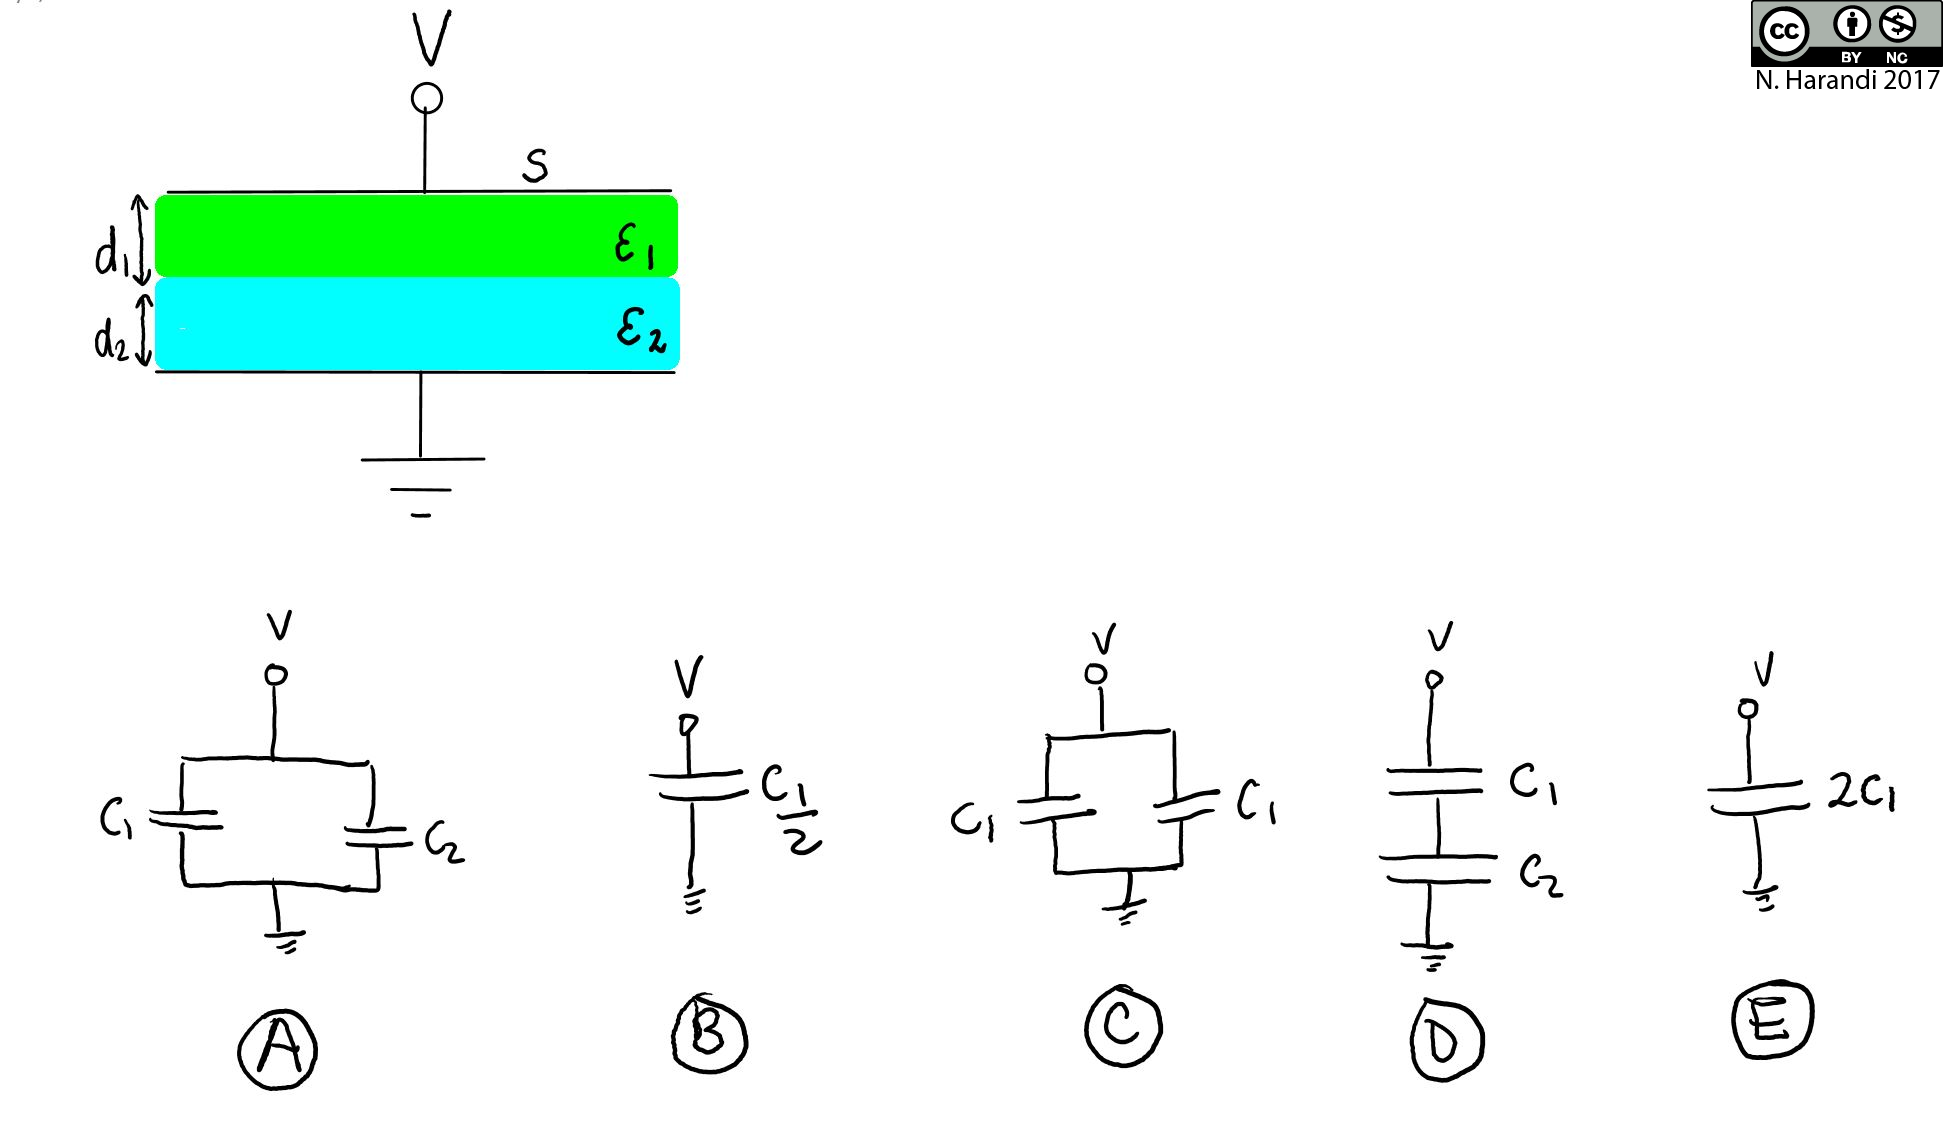 cc
BY NC
N. Harandi 2017
V
S
d1
ε1
d2
ε2
V
C1
C2
A
V
C1/2
B
V
C1
C1
C
V
C1
C2
D
V
2C1
E